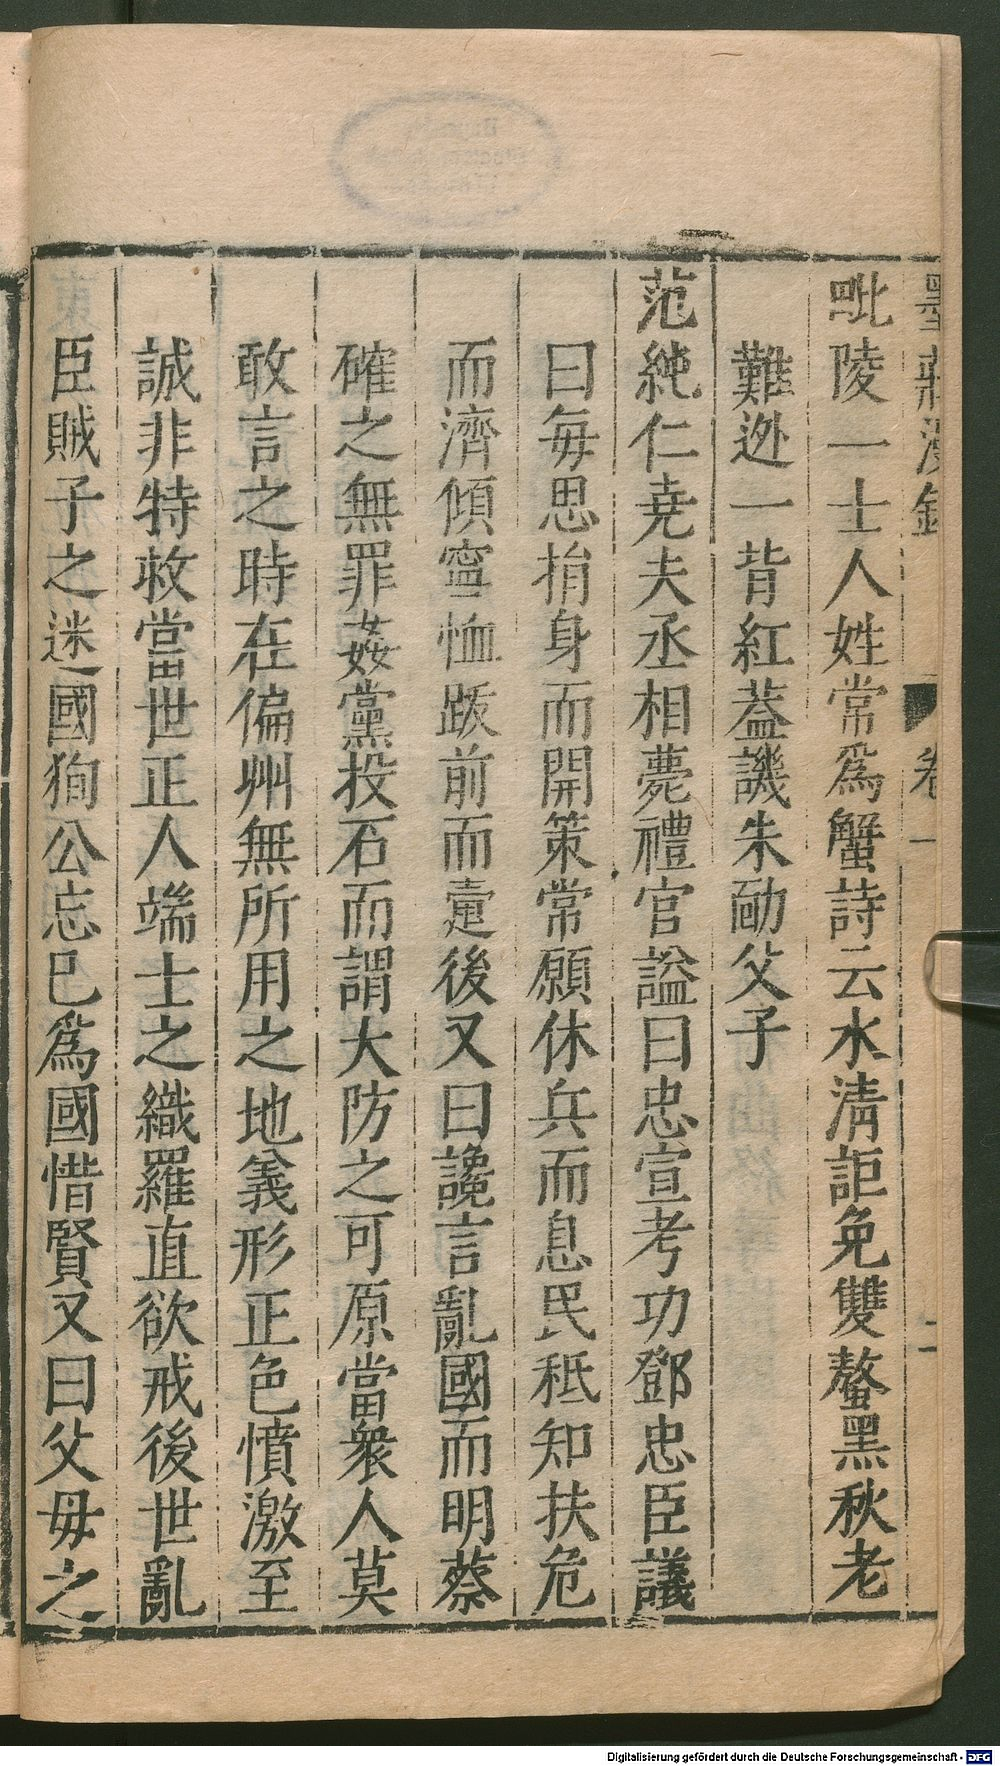 墨莊漫錄 卷一 二
毗陵一士人姓常爲蟹詩云水清詎免雙螯黑秋老
難逃一背紅葢譏朱勔父子
范純仁堯夫丞相薨禮官謚曰忠宣考功鄧忠臣議
曰每思捐身而開策常願休兵而息民秪知扶危
而濟傾寧恤跋前而疐後又曰讒言亂國而明蔡
確之無罪姦黨投石而謂大防之可原當衆人莫
敢言之時在偏州無所用之地義形正色憤激至
誠非特救當世正人端士之織羅直欲戒後世亂
臣賊子之迷國狥公忘已爲國惜賢又曰父母之
Digitalisierung gefördert durch die Deutsche Forschungsgemeinschaft - DFG